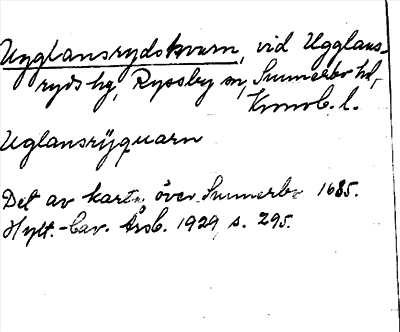 Ugglansrydskvarn, vid Ugglans-
ryds hg, Ryssby sn, Sunnerbo hd,
Kronob. l.
Uglansrÿquarn
Det av karta över Sunnerbo 1685.
Hylt.-Cav. årsb. 1929, s. 295.